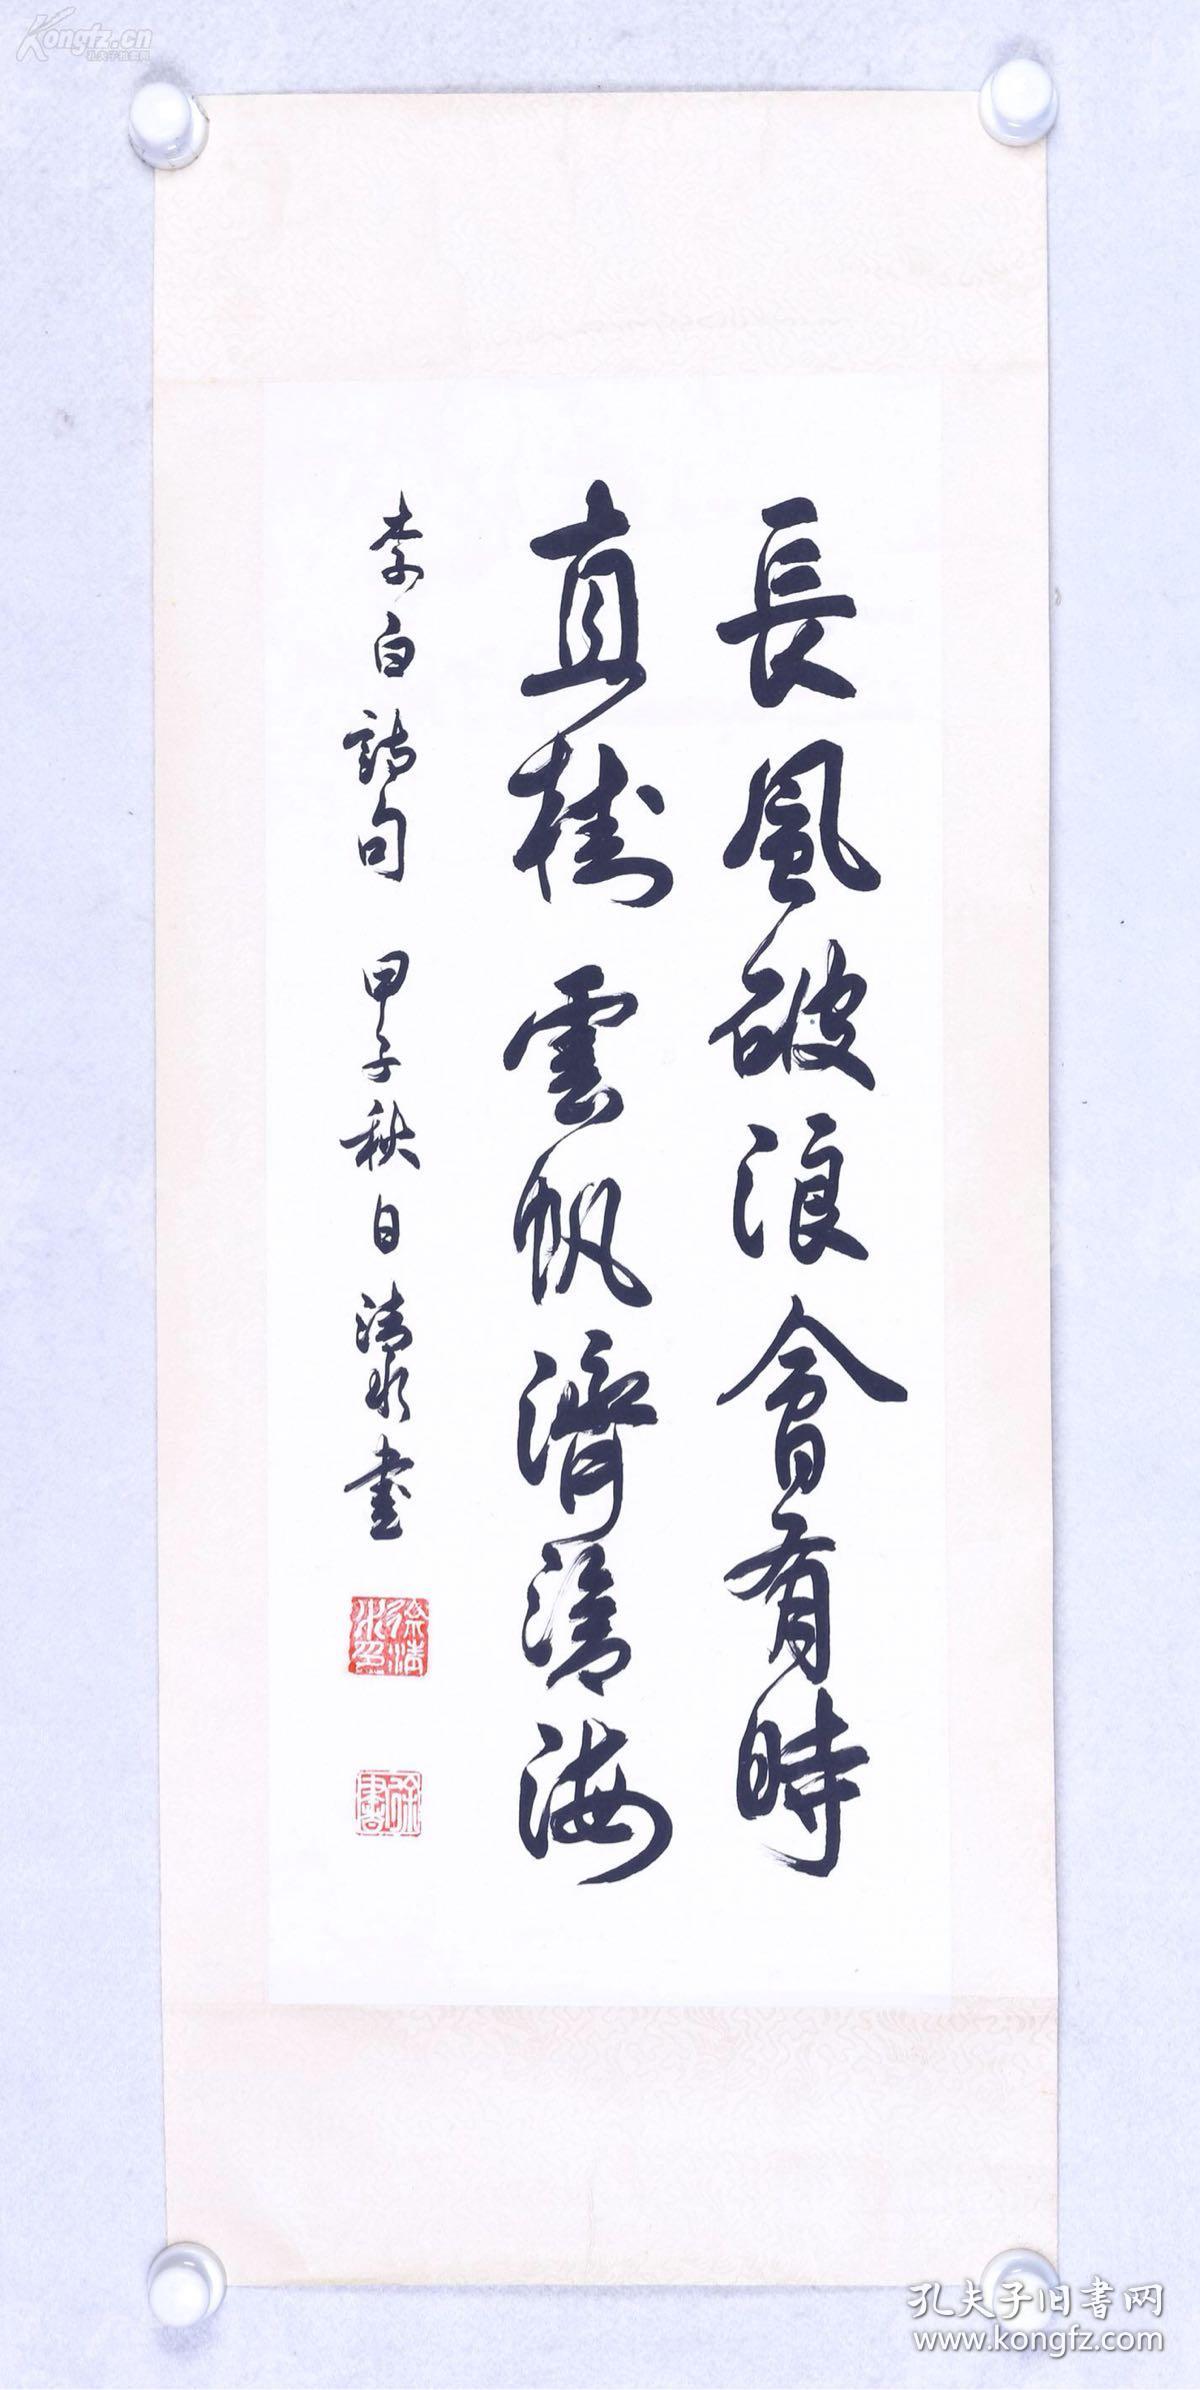 長風破浪會有時
直掛雲帆濟滄海
李白詩句 甲子秋日清水書
徐清水印
徐書
Kongfz.cn
孔夫子拍卖网
孔夫子旧書网
www.kongfz.com